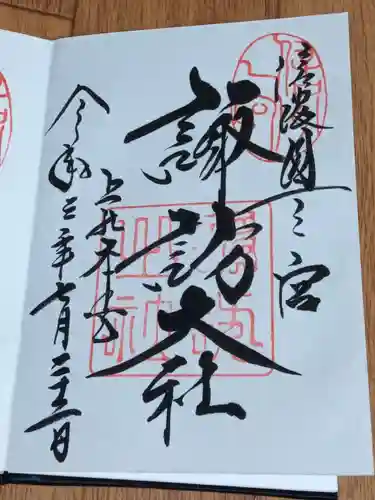 信濃國一之宮
諏訪大社
上社本宮
令和三年七月二十二日